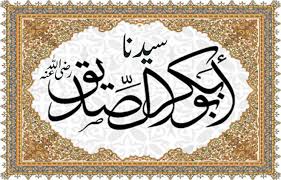 سيدنا
أبو بكر الصّدّيق
رضي الله عنه